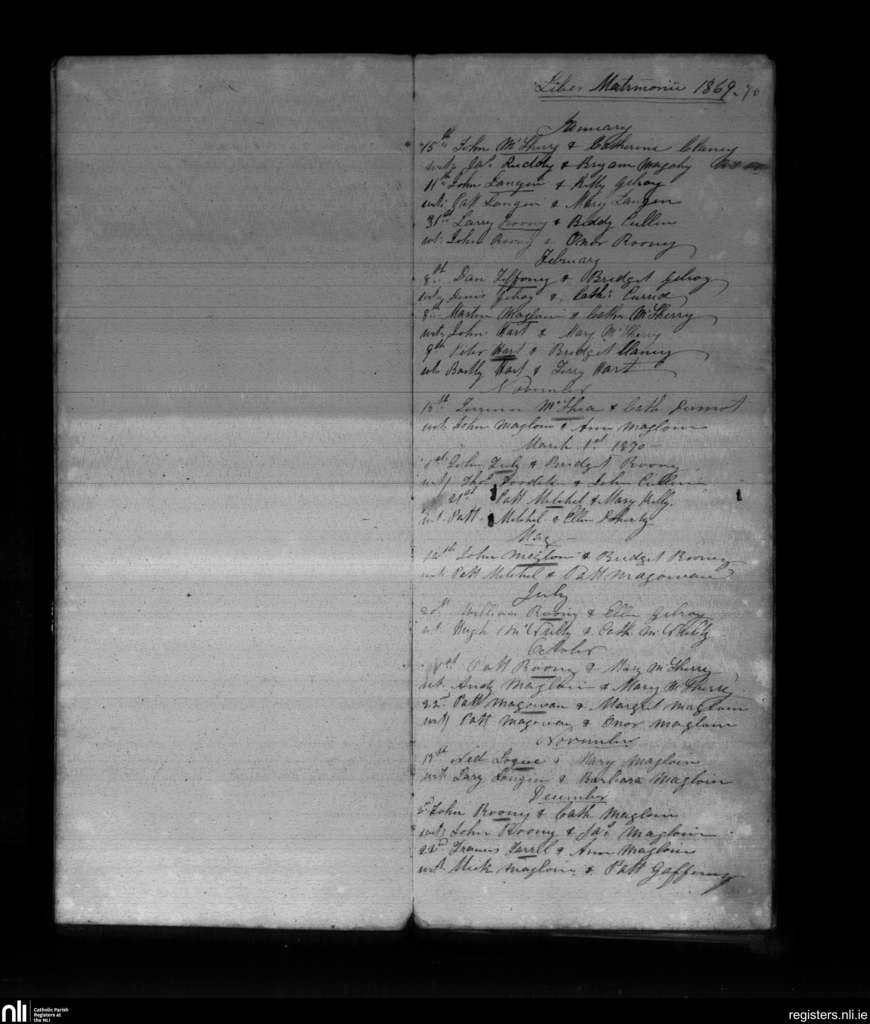 Liber Matrimonii 1869-70
January
15th John McSherry & Catherine Clancy
witn Jas. Ruddy & Bryan Magahy
11th John Langin & Kitty Gilroy
wit: Patt Langin & Mary Langin
31st Larry Roony & Biddy Cullin
wit: John Roony & Onor Roony
February
8th Dan Feffoney & Bridget Gilroy
witn Denis Gilroy & Cath: Currid
8th Martin Magloin & Cathn McSherry
witn John Hart & Mary McSherry
9th Peter Hart & Bridget Clancy
witn Bartly Hart & Terry Hart
November
15th McShea & Cath Dermot
wit John Magloin & Ann Magloin
March 1st 1870
1st John & Bridget Roony
wit Thos. & John Cullin
21st Patt Mitchel & Mary Kelly.
wit. Patt Mitchel & Ellen Doherty
May
12th John Magloin & Bridget Roony
wit: Patt Mitchel & Patt Magowan
July
William Roony & Ellen Gilroy
wit. Hugh & Cath.
October
Patt Roony & Mary McSherry
wit. Andy Magloin & Mary McSherry
22nd Patt Magowan & Margret Magloin
wit Patt Magowan & Onor Magloin
November
Ned Logue & Mary Magloin
wit. Lary Langin & Barbara Magloin
December
John Roony & Cath Magloin
wit: John Roony & Jas. Magloin
22nd Francis Farrel & Ann Magloin
wit. Mick Magloin & Patt Gaffeney
nli Catholic Parish
Registers at
the NLI
registers.nli.ie